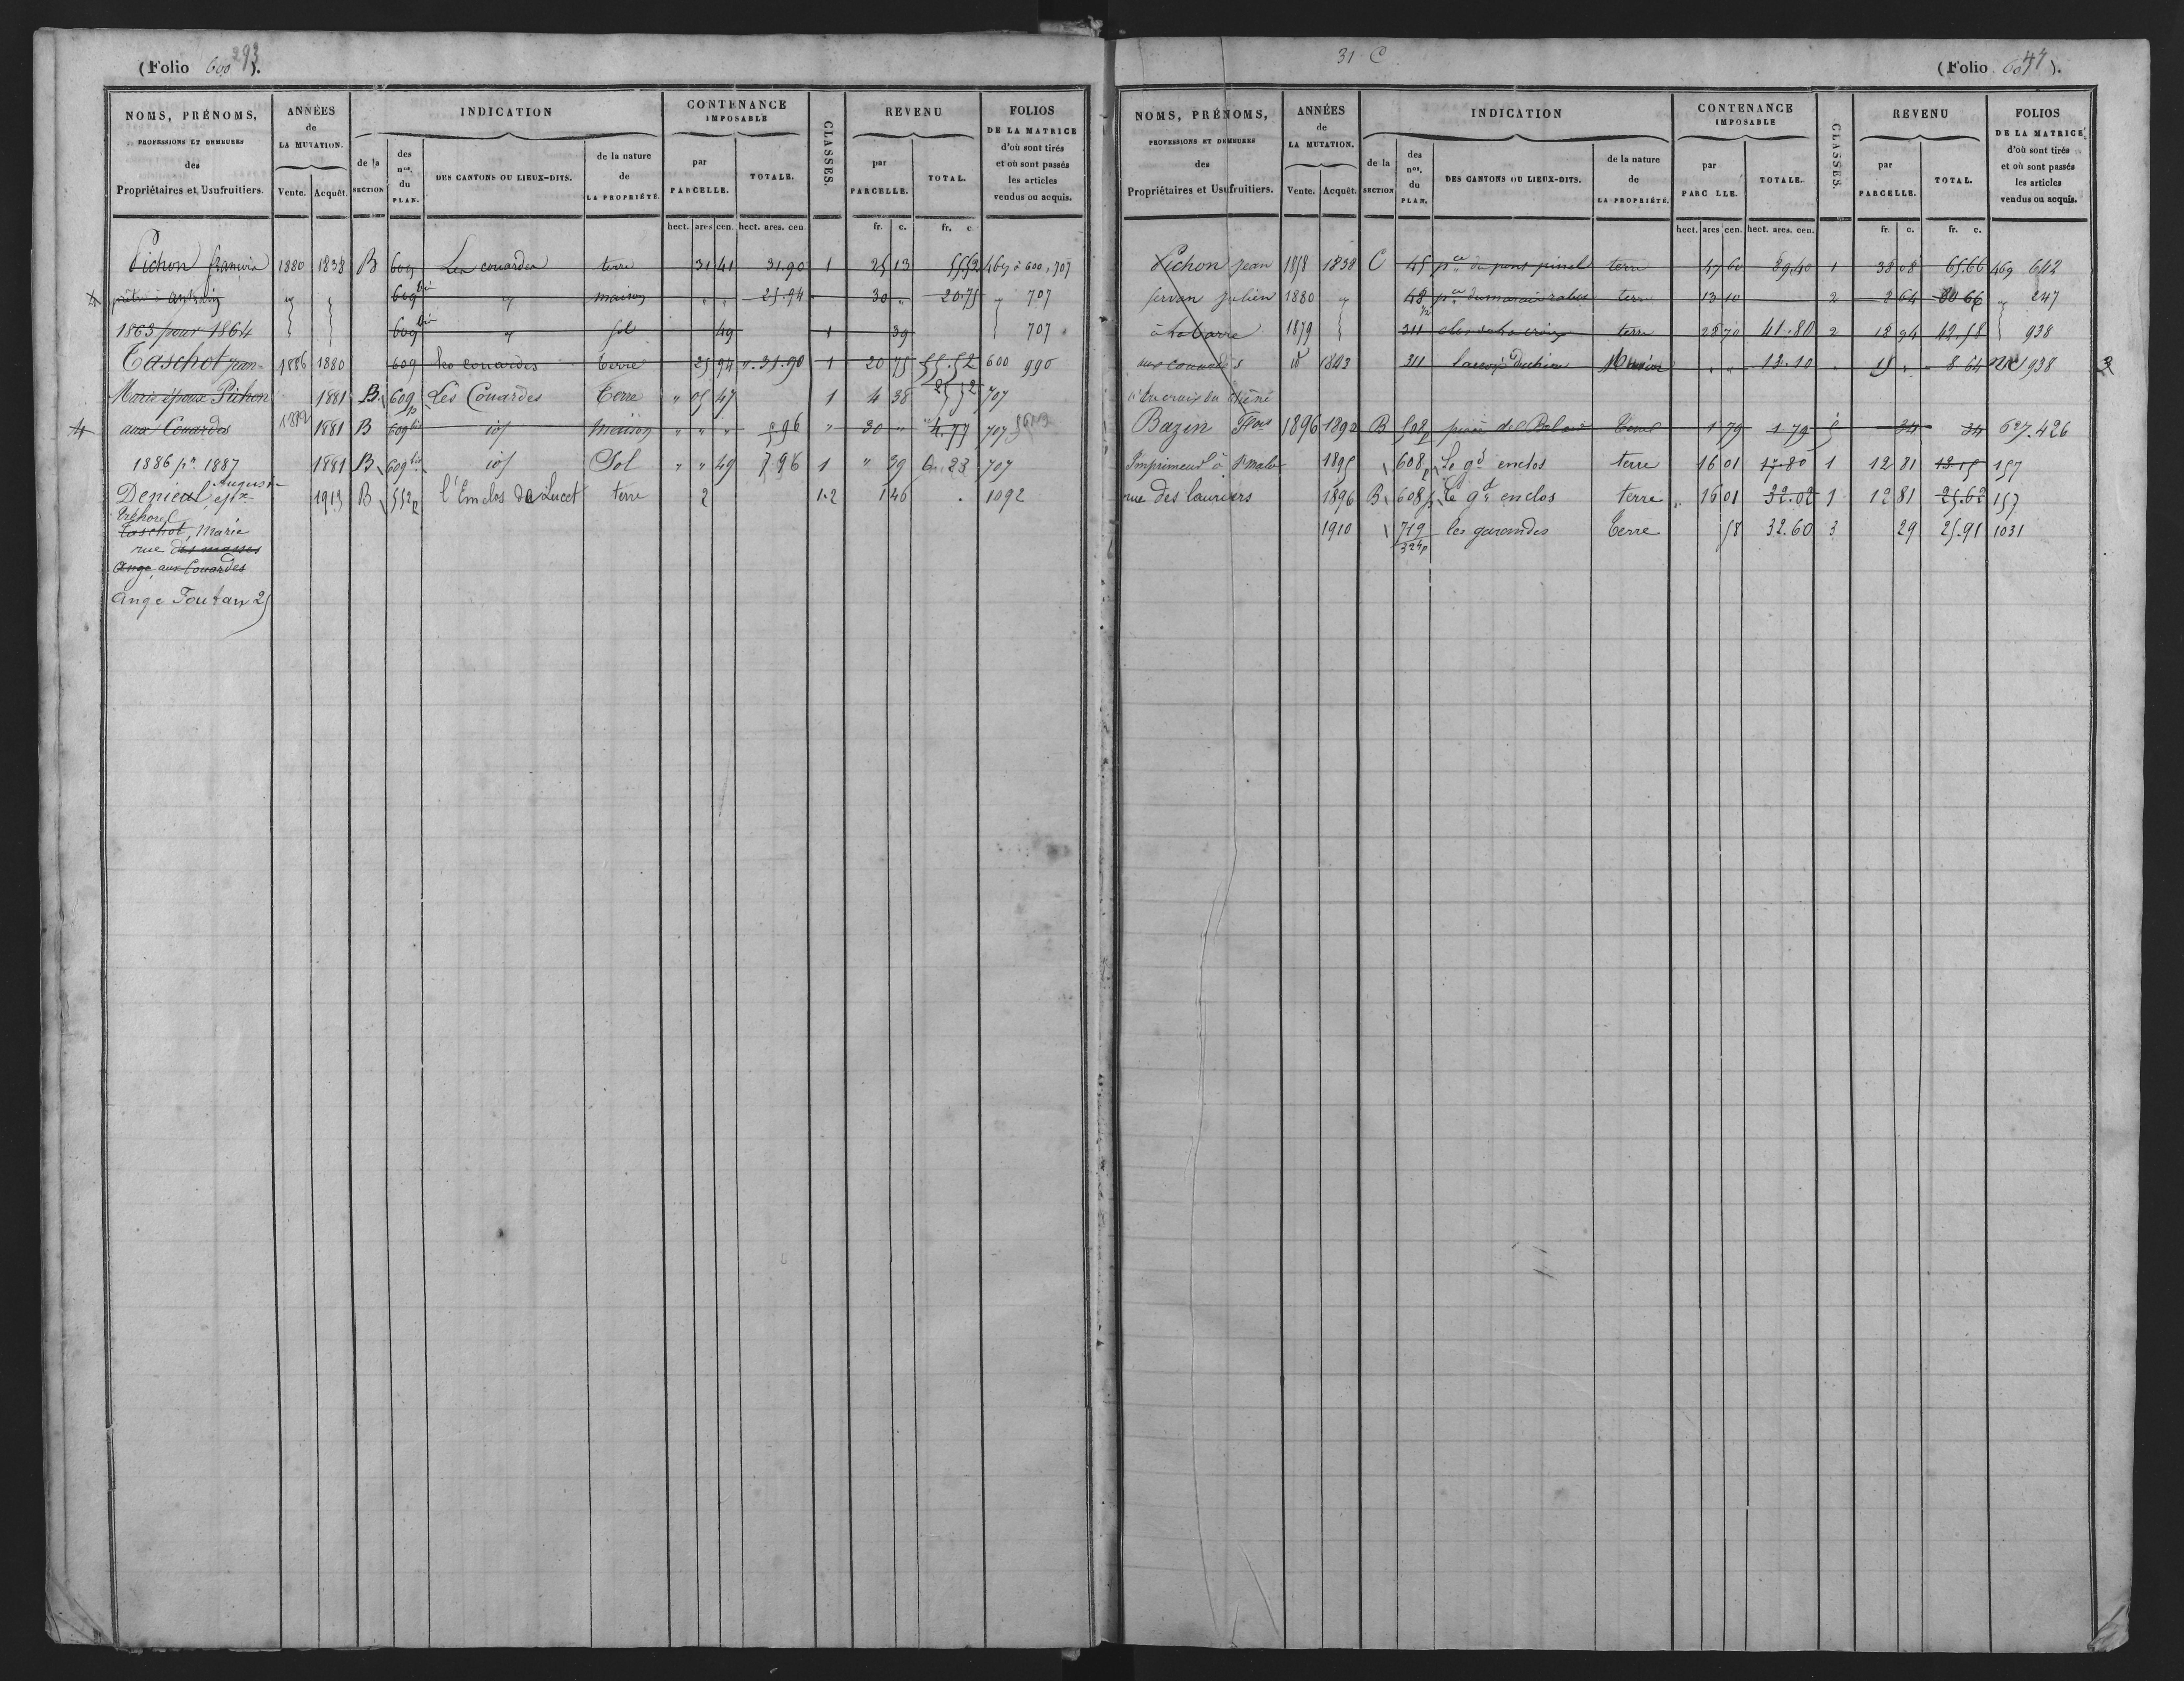 (Folio 600 293).
NOMS, PRÉNOMS, PROFESSIONS ET DEMEURES des Propriétaires et Usufruitiers.
ANNÉES de LA MUTATION. Vente. Acquêt.
INDICATION de la SECTION des nos. du PLAN. DES CANTONS OU LIEUX-DITS. de la nature de LA PROPRIÉTÉ.
CONTENANCE IMPOSABLE par PARCELLE. TOTALE.
CLASSES.
REVENU par PARCELLE. TOTAL.
FOLIOS DE LA MATRICE d'où sont tirés et où sont passés les articles vendus ou acquis.
hect. ares cen. hect. ares. cen. fr. c. fr. c.
Pichon françois 1880 1838 B 609 Les couardes terre 31 41 31.90 1 25 13 55 52 469 à 600, 707
prêtre à antrain " 609 bis " maison " " 25.94 30 " 20.75 " 707
1863 pour 1864 609 bis " sol 49 1 39 707
Taschot 1886 1880 609 les couardes terre 25 94 " 31.90 1 20 75 55.52 600 990
Marie épouse Pichon 1881 B 609 p Les Couardes Terre " 05 47 1 4 38 25 52 707
aux Couardes 1882 1881 B 609 bis id maison " " " 5 96 " 30 " 4.77 707
1886 pr 1887 1881 B 609 bis id Sol " " 49 7.96 1 " 39 6.23 707
Denieul, Auguste 1913 B 552 p l'Enclos de Lucet terre 2 1.2 1 46 . 1092
Tréhorel
Taschot, Marie
rue des masses
Ange aux Couardes
Ange Foutan 25
31 C
(Folio 601 47).
NOMS, PRÉNOMS, PROFESSIONS ET DEMEURES des Propriétaires et Usufruitiers.
ANNÉES de LA MUTATION. Vente. Acquêt.
INDICATION de la SECTION des nos. du PLAN. DES CANTONS OU LIEUX-DITS. de la nature de LA PROPRIÉTÉ.
CONTENANCE IMPOSABLE par PARC LLE. TOTALE.
CLASSES.
REVENU par PARCELLE. TOTAL.
FOLIOS DE LA MATRICE d'où sont tirés et où sont passés les articles vendus ou acquis.
hect. ares cen. hect. ares. cen. fr. c. fr. c.
Pichon Jean 1858 1838 C 45 pce du pont pinel terre 47 60 89.40 1 38 08 65.66 469 642
servan julien 1880 " 48 pce du marais rabot terre 13 10 2 8 64 80 66 " 247
à la barre 1879 311 clos de la croix terre 28 70 41.80 2 18 94 42.58 938
aux couardes id 1843 311 la croix du chêne Maison " " 13.10 15 " 8 64 938
à la croix du chêne
Bazin Fçois 1896 1892 B 508 p terre 1 79 1 79 5 34 34 627.426
Imprimeur à St malo 1895 608 p Le gd enclos terre 16 01 17.80 1 12 81 13.15 157
rue des lauriers 1896 B 608 p Le gd enclos terre " 16 01 32.02 1 12 81 25.62 157
1910 719 324p les garandes Terre 58 32.60 3 29 25.91 1031